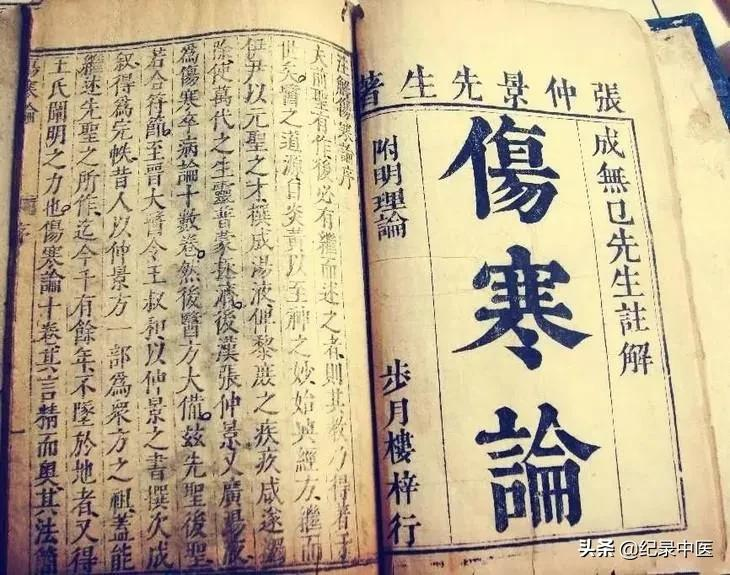 張仲景先生著
成無已先生註解
傷寒論
附明理論
步月樓梓行
註解傷寒論序
夫前聖有作後必有繼而述之者則其教乃得著于
世矣。醫之道源自炎黃以至神之妙始興經方。繼而
伊尹以元聖之才撰成湯液俾黎庶之疾疚咸遂蠲
除使萬代之生靈普蒙拯濟。後漢張仲景又廣湯液
為傷寒卒病論十數卷。然後醫方大備。茲先聖後聖
若合符節。至晉太醫令王叔和以仲景之書撰次成
敘得為完帙。昔人以仲景方一部為眾方之祖。蓋能
繼述先聖之所作。迄今千有餘年不墜於地者又得
王氏闡明之力也。傷寒論十卷其言精而奧其法簡
傷寒論 序
头条 @纪录中医